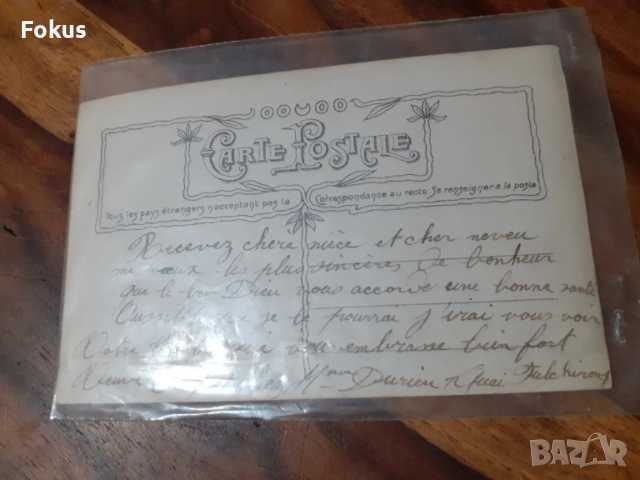 Fokus
CARTE POSTALE
Tous les pays étrangers n'acceptant pas la Correspondance au recto. Se renseigner à la poste
Recevez chere nièce et cher neveu
mes vœux les plus sincères de bonheur
que le bon Dieu vous accorde une bonne santé
que je le pourrai j'irai vous voir
Votre qui vous embrasse bien fort
Veuve chez Mme Durieu Quai Fulchiron
BAZAR